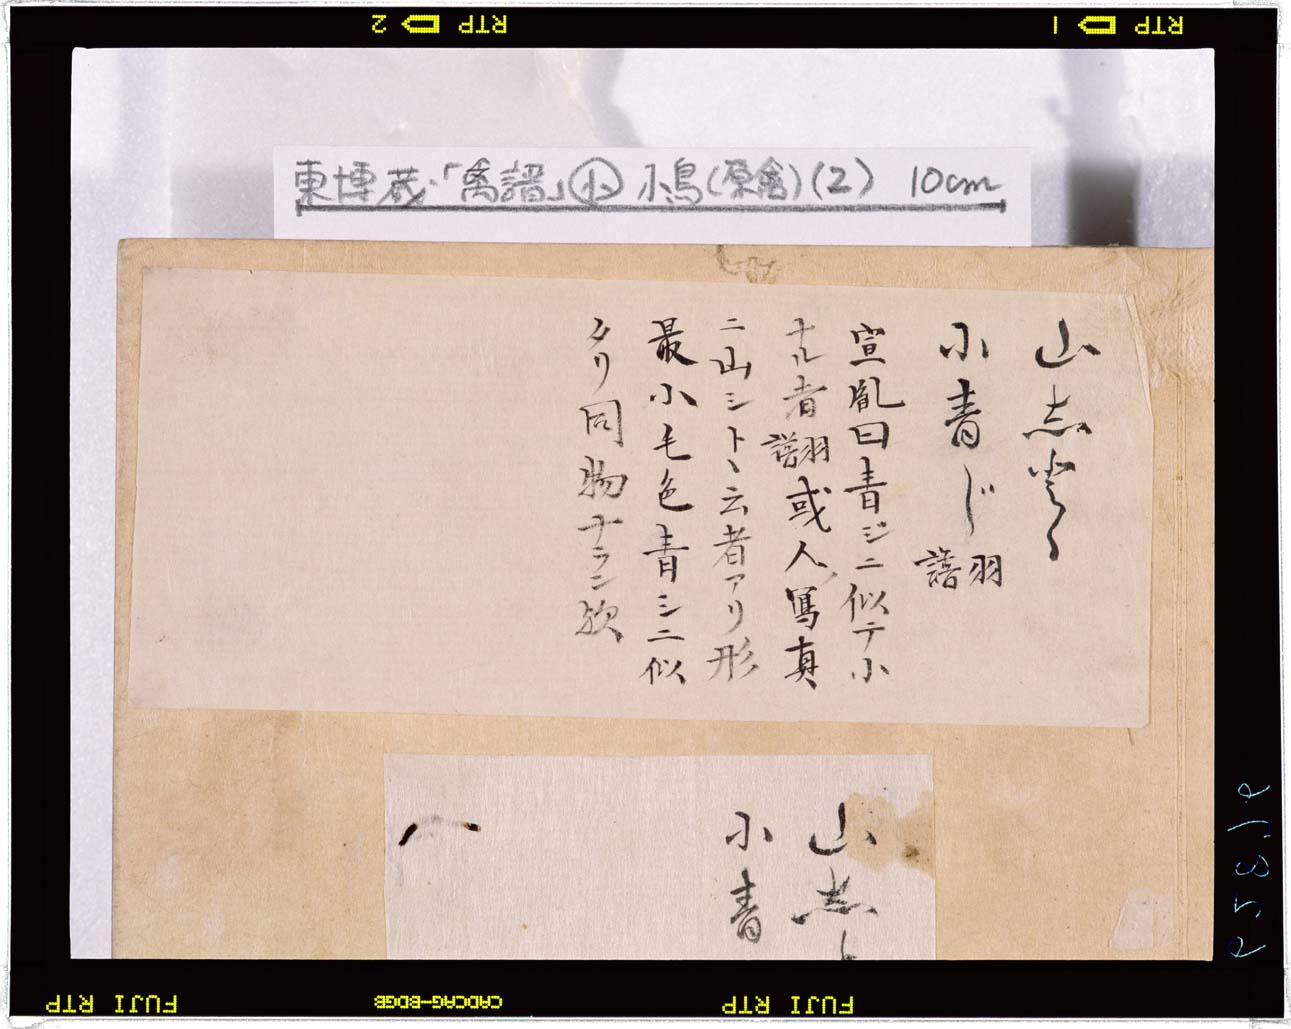 RTP 2
RTP 1
東博蔵「禽譜」小 小鳥(原禽)(2) 10cm
山志とゝ
小青じ 羽譜
宣胤曰青ジニ似テ小
ナル者 羽譜 或人冩真
ニ山シトヽ云者アリ形
最小毛色青シニ似
タリ同物ナラン欤
山志と
小青
FUJI RTP
CADCAG-EDGB
FUJI RTP